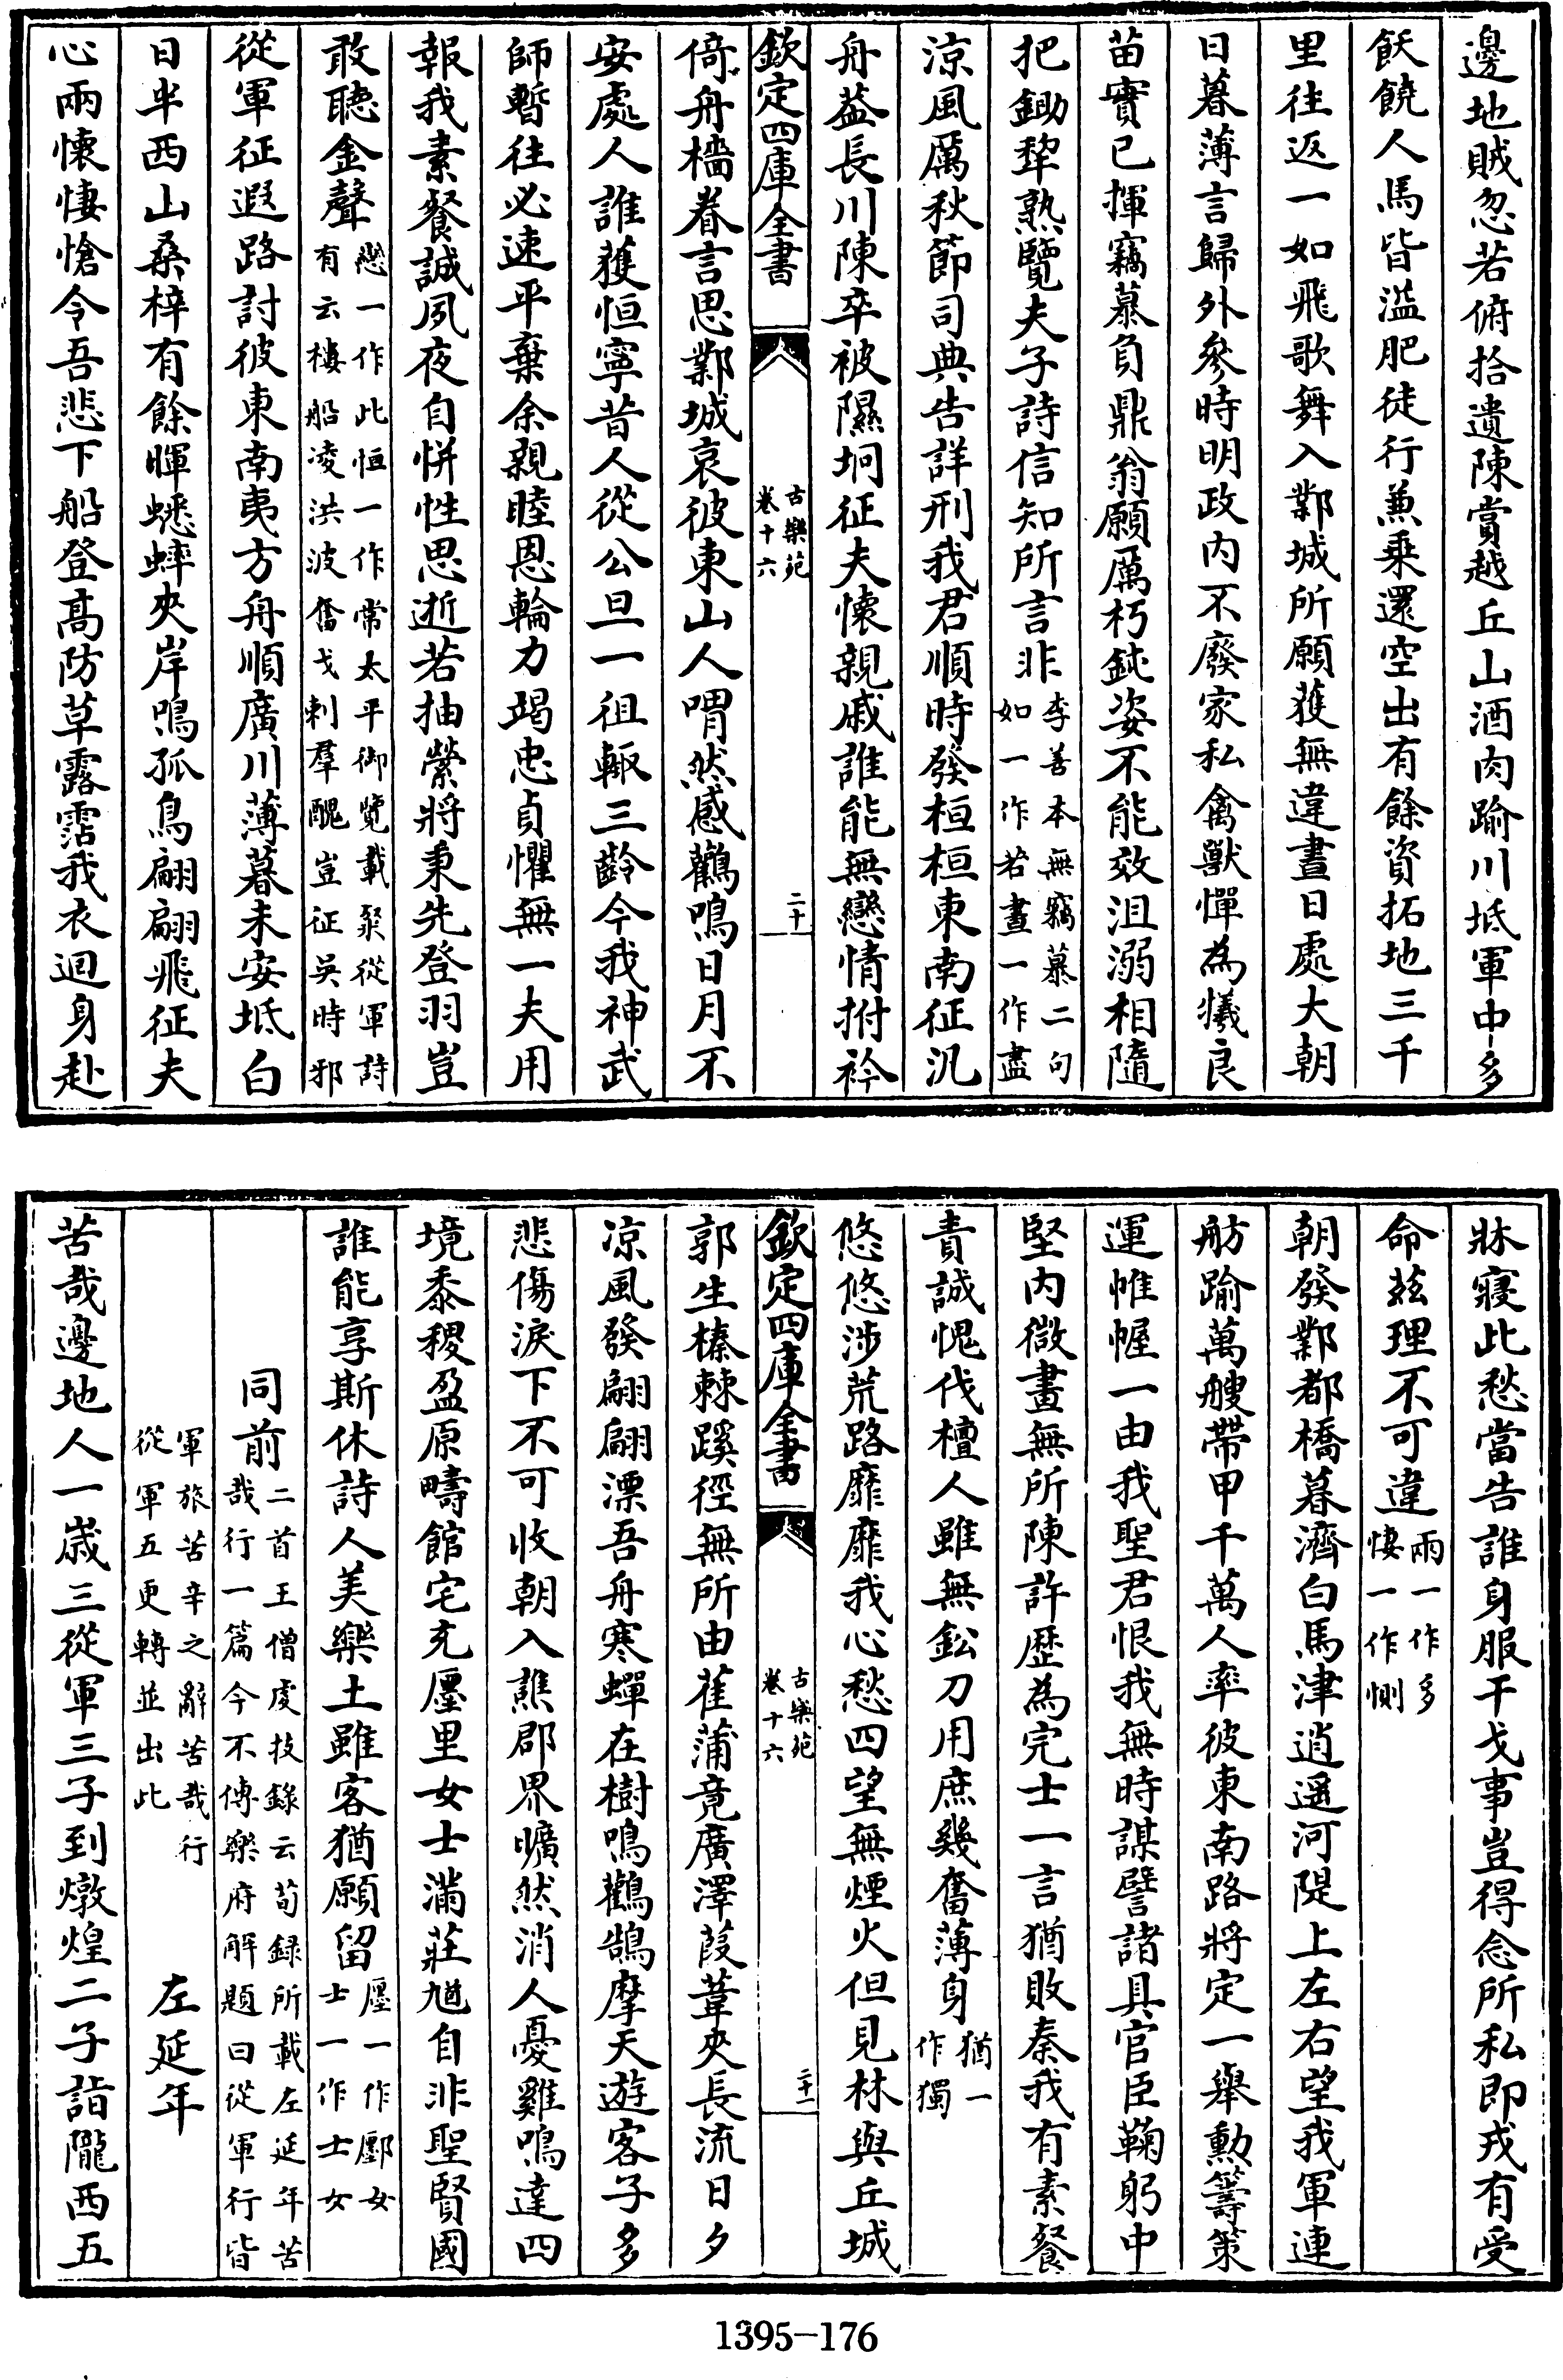 邊地賊忽若俯拾遺陳賞越丘山酒肉踰川坻軍中多
飫饒人馬皆溢肥徒行兼乗還空出有餘資拓地三千
里往返一如飛歌舞入鄴城所願獲無違晝日處大朝
日暮薄言歸外參時明政内不廢家私禽獸憚為犧良
苗實已揮竊慕負鼎翁願厲朽鈍姿不能效沮溺相隨
把鋤犂熟覽夫子詩信知所言非李善本無竊慕二句如一作若晝一作盡
涼風厲秋節司典告詳刑我君順時發桓桓東南征汎
舟葢長川陳卒被隰坰征夫懷親戚誰能無戀情拊衿
欽定四庫全書 古樂苑卷十六 二十
倚舟檣眷言思鄴城哀彼東山人喟然感鸛鳴日月不
安處人誰獲恒寧昔人從公旦一徂輙三齡今我神武
師暫往必速平棄余親睦恩輪力竭忠貞懼無一夫用
報我素餐誠夙夜自恲性思逝若抽縈將秉先登羽豈
敢聽金聲戀一作此恒一作常太平御覽載粲從軍詩有云樓船凌洪波奮戈刺羣醜豈征吳時邪
從軍征遐路討彼東南夷方舟順廣川薄暮未安坻白
日半西山桑梓有餘暉蟋蟀夾岸鳴孤鳥翩翩飛征夫
心兩懷悽愴令吾悲下船登高防草露霑我衣迴身赴
牀寢此愁當告誰身服干戈事豈得念所私即戎有受
命兹理不可違兩一作多悽一作惻
朝發鄴都橋暮濟白馬津逍遥河隄上左右望我軍連
舫踰萬艘帶甲千萬人率彼東南路將定一舉勳籌策
運帷幄一由我聖君恨我無時謀譬諸具官臣鞠躬中
堅内微畫無所陳許歷為完士一言猶敗秦我有素餐
責誠愧伐檀人雖無鈆刀用庶幾奮薄身猶一作獨
悠悠涉荒路靡靡我心愁四望無煙火但見林與丘城
欽定四庫全書 古樂苑卷十六 二十一
郭生榛棘蹊徑無所由雚蒲竟廣澤葭葦夾長流日夕
凉風發翩翩漂吾舟寒蟬在樹鳴鸛鵠摩天遊客子多
悲傷淚下不可收朝入譙郡界曠然消人憂雞鳴達四
境黍稷盈原疇館宅充廛里女士滿莊馗自非聖賢國
誰能享斯休詩人美樂土雖客猶願留廛一作鄽女士一作士女
同前二首王僧虔技錄云荀録所載左延年苦哉行一篇今不傳樂府解題曰從軍行皆
軍旅苦辛之辭苦哉行從軍五更轉並出此 左延年
苦哉邊地人一歲三從軍三子到燉煌二子詣隴西五
1395-176